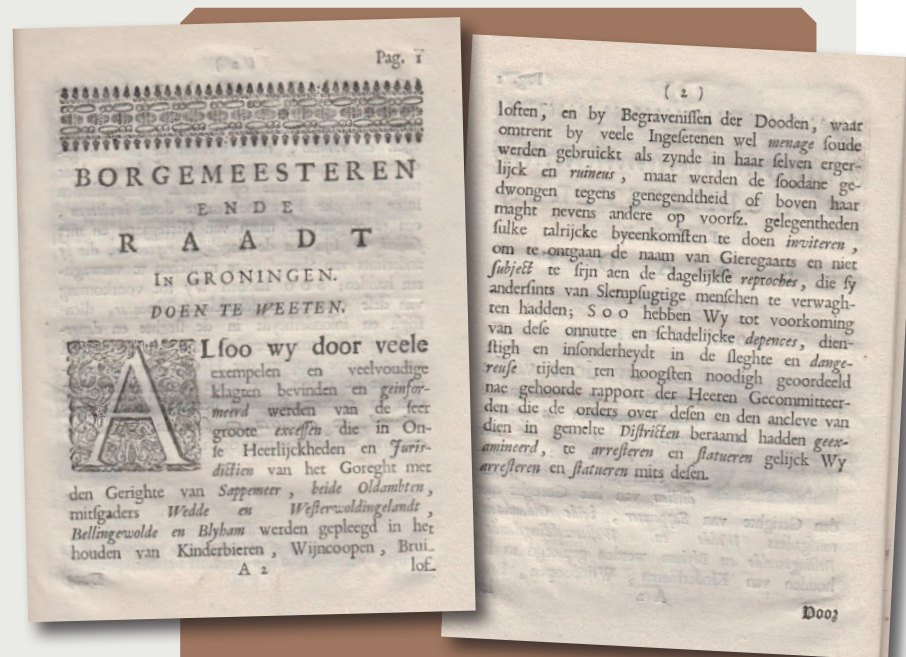 Pag. 1
BORGEMEESTEREN
ENDE
RAADT
IN GRONINGEN.
DOEN TE WEETEN.
ALſoo wy door veele
exempelen en veelvoudige
klagten bevinden en geinfor-
meerd werden van de ſeer
groote exceſſen die in On-
ſe Heerlijckheden en Juris-
dictien van het Goreght met
den Gerighte van Sappemeer, beide Oldambten,
mitſgaders Wedde en Weſterwoldingelandt,
Bellingewolde en Blyham werden gepleegd in het
houden van Kinderbieren, Wijncoopen, Brui-
A 2
lof-
(2)
loften, en by Begraveniſſen der Dooden, waar
omtrent by veele Ingeſetenen wel menage ſoude
werden gebruickt als zynde in haar ſelven erger-
lijck en ruineus, maar werden de ſoodane ge-
dwongen tegens genegendtheid of boven haar
maght nevens andere op voorſz. gelegentheden
ſulke talrijcke byeenkomſten te doen inviteren,
om te ontgaan de naam van Gieregaarts en niet
ſubject te ſrjn aen de dagelijkſe reproches, die ſy
anderſints van Slempſugtige menſchen te verwagh-
ten hadden; Soo hebben Wy tot voorkoming
van deſe onnutte en ſchadelijcke depences, dien-
ſtigh en inſonderheydt in de ſleghte en dange-
reuſe tijden ten hoogſten noodigh geoordeeld
nae gehoorde rapport der Heeren Gecommitteer-
den die de orders over deſen en den ancleve van
dien in gemelte Diſtricten beraamd hadden geex-
amineerd, te arreſteren en ſtatueren gelijck Wy
arreſteren en ſtatueren mits deſen.
Dooꝛ